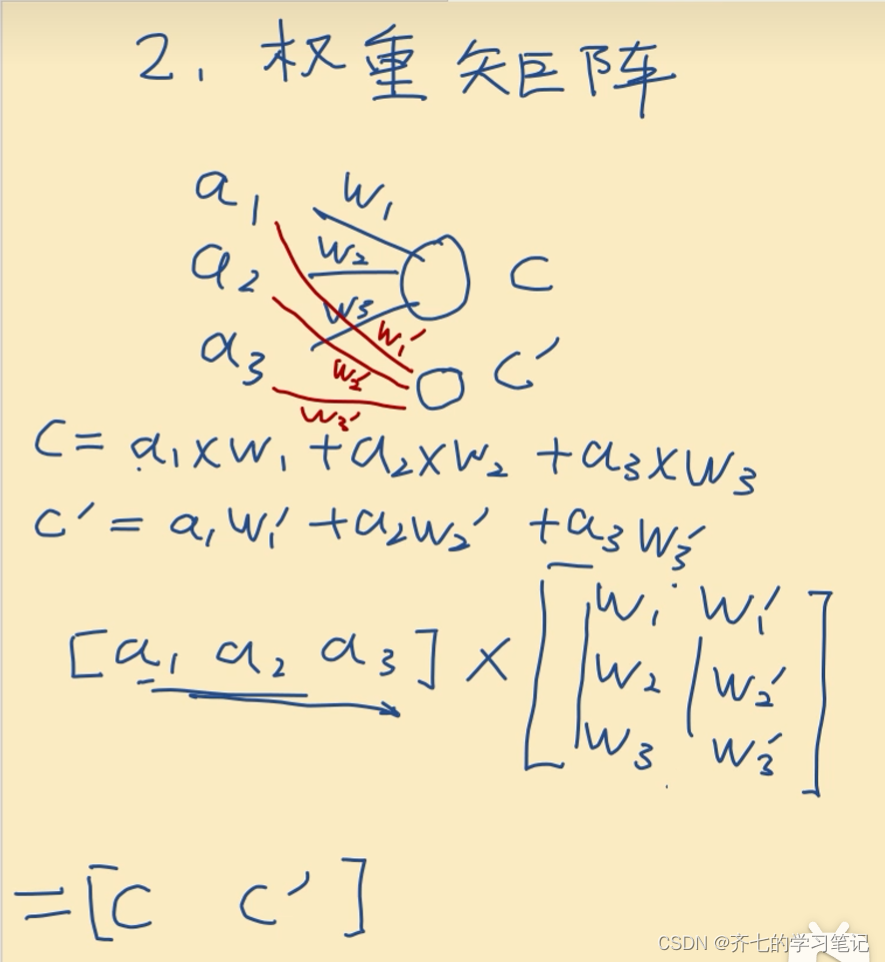 2. 权重矩阵
a₁ w₁
a₂ w₂ c
a₃ w₃ w₁′ c′
w₂′
w₃′
c = a₁×w₁ + a₂×w₂ + a₃×w₃
c′ = a₁w₁′ + a₂w₂′ + a₃w₃′
[a₁ a₂ a₃] × [w₁ w₁′
w₂ w₂′
w₃ w₃′]
= [c c′]
CSDN @齐七的学习笔记